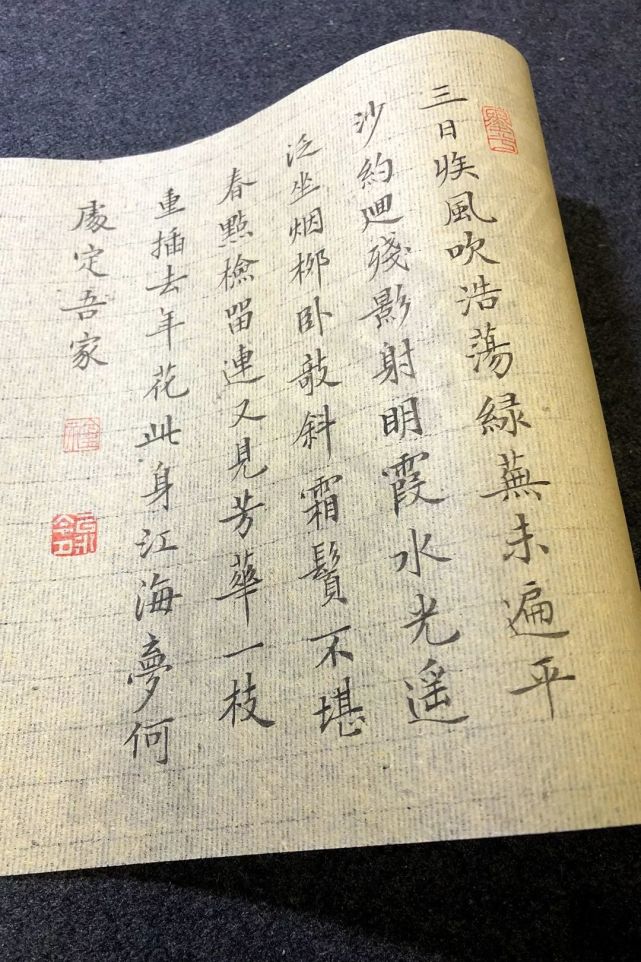 三日疾風吹浩蕩緑蕪未遍平
沙約迴殘影射眀霞水光遥
泛坐烟栁卧敧斜霜鬢不堪
春點檢留連又見芳華一枝
重插去年花此身江海夢何
處定吾家